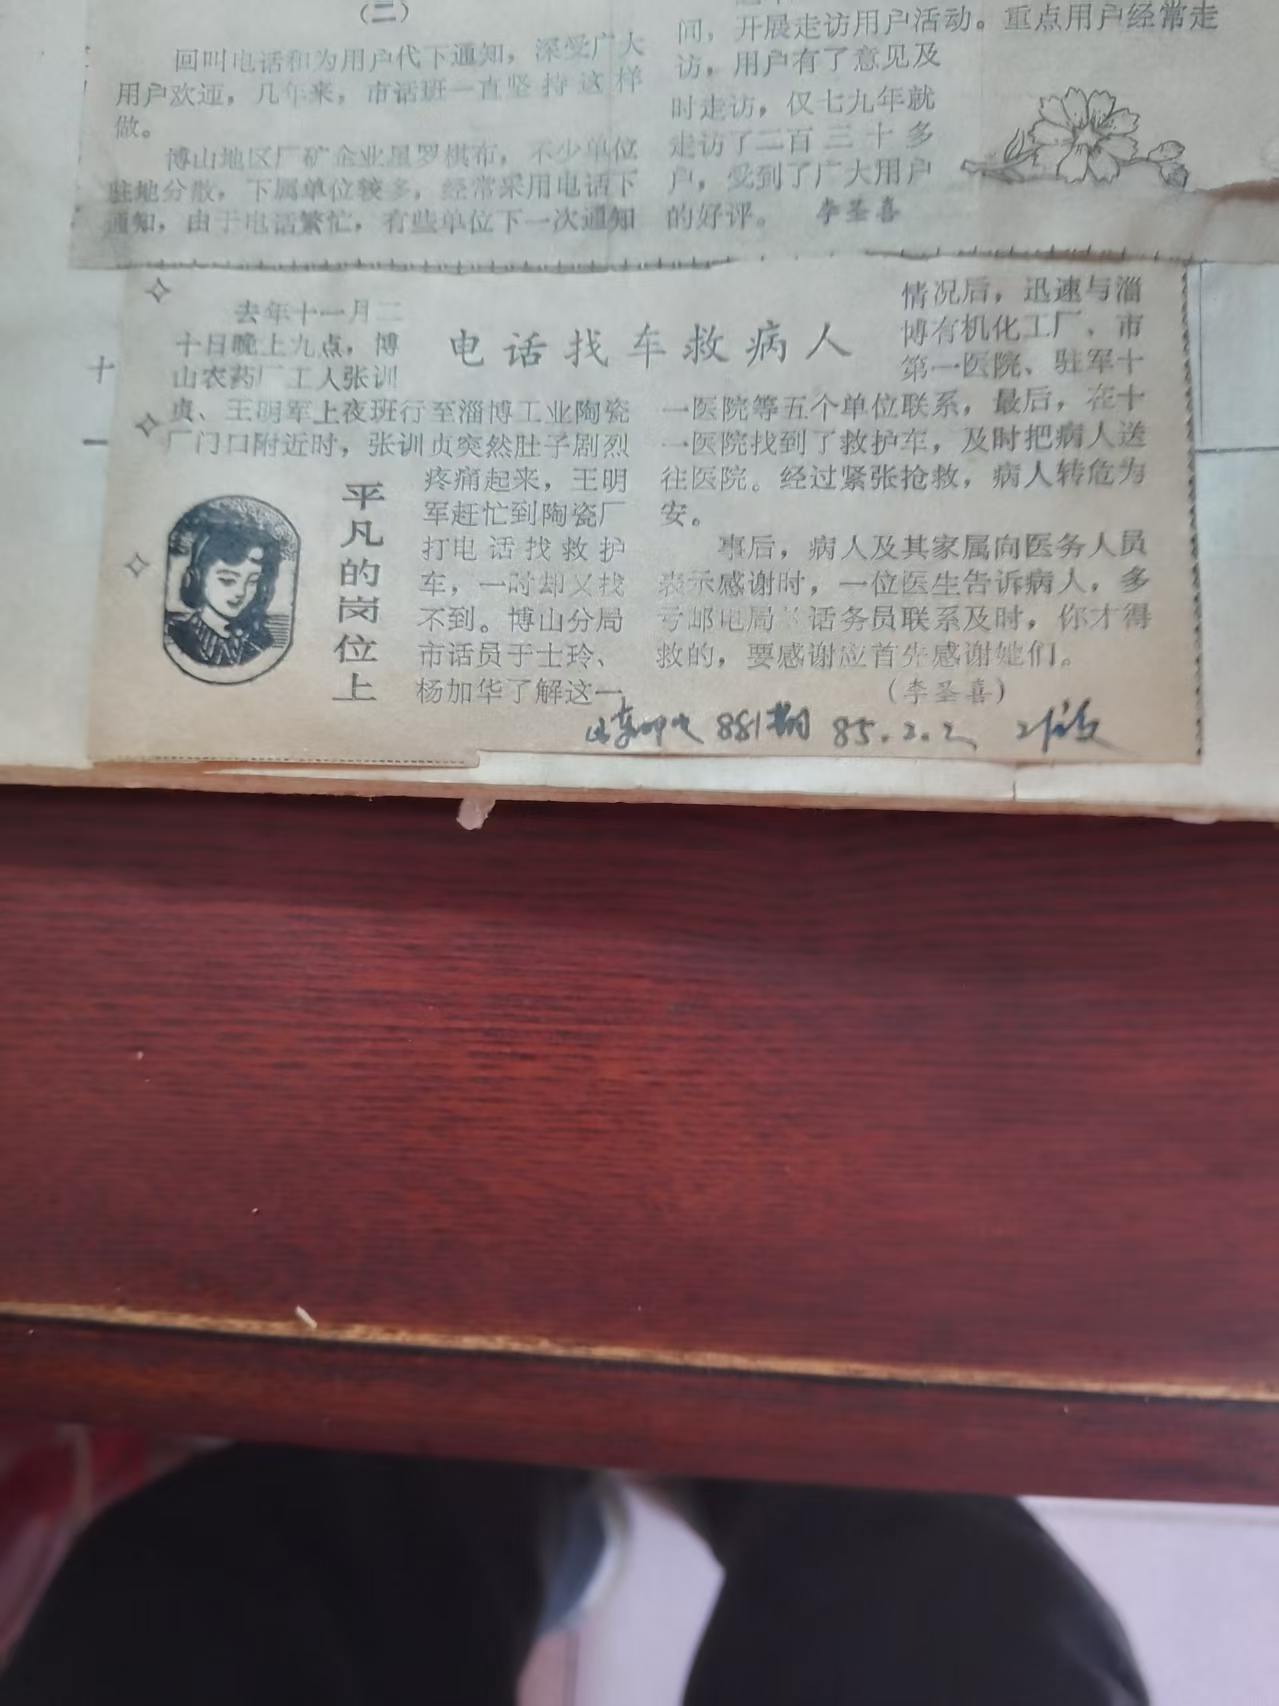 （二）
回叫电话和为用户代下通知，深受广大
用户欢迎，几年来，市话班一直坚持这样
做。
博山地区厂矿企业星罗棋布，不少单位
驻地分散，下属单位较多，经常采用电话下
通知，由于电话繁忙，有些单位下一次通知
间，开展走访用户活动。重点用户经常走
访，用户有了意见及
时走访，仅七九年就
走访了二百三十多
户，受到了广大用户
的好评。 李圣喜
十
一
电话找车救病人
平凡的岗位上
去年十一月二
十日晚上九点，博
山农药厂工人张训
贞、王明军上夜班行至淄博工业陶瓷
厂门口附近时，张训贞突然肚子剧烈
疼痛起来，王明
军赶忙到陶瓷厂
打电话找救护
车，一时却又找
不到。博山分局
市话员于士玲、
杨加华了解这一
情况后，迅速与淄
博有机化工厂、市
第一医院、驻军十
一医院等五个单位联系，最后，在十
一医院找到了救护车，及时把病人送
往医院。经过紧张抢救，病人转危为
安。
事后，病人及其家属向医务人员
表示感谢时，一位医生告诉病人，多
亏邮电局 话务员联系及时，你才得
救的，要感谢应首先感谢她们。
（李圣喜）
山东邮电 881期 85.2.2 2版